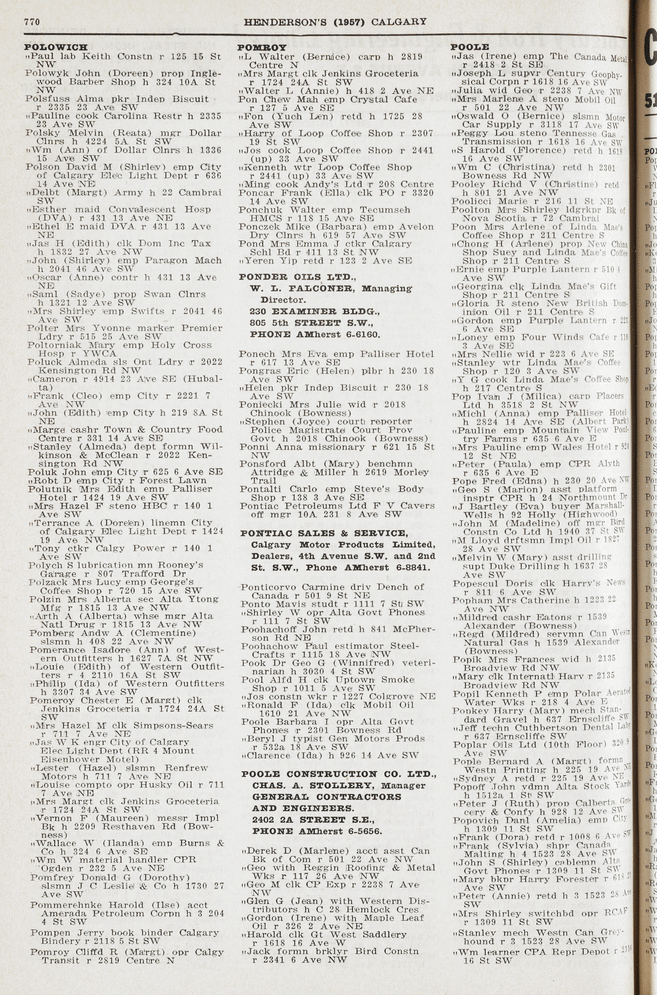 770
HENDERSON'S (1957) CALGARY
POLOWICH
„Paul lab Keith Constn r 125 15 St
NW
Polowyk John (Doreen) prop Ingle-
wood Barber Shop h 324 10A St
NW
Polsfuss Alma pkr Indep Biscuit
r 2335 23 Ave SW
„Pauline cook Carolina Restr h 2335
23 Ave SW
Polsky Melvin (Reata) mgr Dollar
Clnrs h 4224 5A St SW
„Wm (Ann) of Dollar Clnrs h 1336
15 Ave SW
Polson David M (Shirley) emp City
of Calgary Elec Light Dept r 636
14 Ave NE
„Delbt (Margt) Army h 22 Cambrai
SW
„Esther maid Convalescent Hosp
(DVA) r 431 13 Ave NE
„Ethel E maid DVA r 431 13 Ave
NE
„Jas H (Edith) clk Dom Inc Tax
h 1832 27 Ave NW
„John (Shirley) emp Paragon Mach
h 2041 46 Ave SW
„Oscar (Anne) contr h 431 13 Ave
NE
„Saml (Sadye) prop Swan Clnrs
h 1321 12 Ave SW
„Mrs Shirley emp Swifts r 2041 46
Ave SW
Polter Mrs Yvonne marker Premier
Ldry r 515 25 Ave SW
Poltorniak Mary emp Holy Cross
Hosp r YWCA
Poluck Almeda sls Ont Ldry r 2022
Kensington Rd NW
„Cameron r 4914 23 Ave SW (Hubal-
ta)
„Frank (Cleo) emp City r 2221 7
Ave NW
„John (Edith) emp City h 219 8A St
NE
„Marge cashr Town & Country Food
Centre r 331 14 Ave SE
„Stanley (Almeda) dept formn Wil-
kinson & McClean r 2022 Ken-
sington Rd NW
Poluk John emp City r 625 6 Ave SE
„Robt D emp City r Forest Lawn
Polutnik Mrs Edith emp Palliser
Hotel r 1424 19 Ave SW
„Mrs Hazel F steno HBC r 140 1
Ave SW
„Terrance A (Doreen) linemn City
of Calgary Elec Light Dept r 1424
19 Ave NW
„Tony ctkr Calgy Power r 140 1
Ave SW
Polych S lubrication mn Rooney's
Garage r 807 Trafford Dr
Polzack Mrs Lucy emp George's
Coffee Shop r 720 15 Ave SW
Polzin Mrs Alberta sec Alta Ytong
Mfg r 1815 13 Ave NW
„Arth A (Alberta) whse mgr Alta
Natl Drug r 1815 13 Ave NW
Pomberg Andw A (Clementine)
slsmn h 408 22 Ave NW
Pomerance Isadore (Ann) of West-
ern Outfitters h 1627 7A St NW
„Louie (Edith) of Western Outfit-
ters r 4 2110 16A St SW
„Philip (Ida) of Western Outfitters
h 3307 34 Ave SW
Pomeroy Chester E (Margt) clk
Jenkins Groceteria r 1724 24A St
SW
„Mrs Hazel M clk Simpsons-Sears
r 711 7 Ave NE
„Jas W K engr City of Calgary
Elec Light Dept (RR 4 Mount
Eisenhower Motel)
„Lester (Hazel) slsmn Renfrew
Motors h 711 7 Ave NE
„Louise compto opr Husky Oil r 711
7 Ave NE
„Mrs Margt clk Jenkins Groceteria
r 1724 24A St SW
„Vernon F (Maureen) messr Impl
Bk h 2209 Resthaven Rd (Bow-
ness)
„Wallace W (Ilanda) emp Burns &
Co h 324 6 Ave SE
„Wm W material handler CPR
Ogden r 232 5 Ave NE
Pomfrey Donald G (Dorothy)
slsmn J C Leslie & Co h 1730 27
Ave SW
Pommerehnke Harold (Ilse) acct
Amerada Petroleum Corpn h 3 204
4 St SW
Pompen Jerry book binder Calgary
Bindery r 2118 5 St SW
Pomroy Cliffd R (Margt) opr Calgy
Transit r 2819 Centre N
POMROY
„L Walter (Bernice) carp h 2819
Centre N
„Mrs Margt clk Jenkins Groceteria
r 1724 24A St SW
„Walter L (Annie) h 418 2 Ave NE
Pon Chew Mah emp Crystal Cafe
r 127 5 Ave SE
„Fon (Yuch Len) retd h 1725 28
Ave SW
„Harry of Loop Coffee Shop r 2307
19 St SW
„Jos cook Loop Coffee Shop r 2441
(up) 33 Ave SW
„Kenneth wtr Loop Coffee Shop
r 2441 (up) 33 Ave SW
„Ming cook Andy's Ltd r 208 Centre
Poncar Frank (Ella) clk PO r 3320
14 Ave SW
Ponchuk Walter emp Tecumseh
HMCS r 118 15 Ave SE
Ponczek Mike (Barbara) emp Avelon
Dry Clnrs h 619 57 Ave SW
Pond Mrs Emma J ctkr Calgary
Schl Bd r 411 13 St NW
„Yeren Yip retd r 123 2 Ave SE
PONDER OILS LTD.,
W. L. FALCONER, Managing
Director.
230 EXAMINER BLDG.,
805 5th STREET S.W.,
PHONE AMherst 6-6160.
Ponech Mrs Eva emp Palliser Hotel
r 617 13 Ave SE
Pongras Eric (Helen) plbr h 230 18
Ave SW
„Helen pkr Indep Biscuit r 230 18
Ave SW
Poniecki Mrs Julie wid r 2018
Chinook (Bowness)
„Stephen (Joyce) court reporter
Police Magistrate Court Prov
Govt h 2018 Chinook (Bowness)
Ponni Anna missionary r 621 15 St
NW
Ponsford Albt (Mary) benchmn
Attridge & Miller h 2619 Morley
Trail
Pontalti Carlo emp Steve's Body
Shop r 138 3 Ave SE
Pontiac Petroleums Ltd F V Cavers
off mgr 10A 231 8 Ave SW
PONTIAC SALES & SERVICE,
Calgary Motor Products Limited,
Dealers, 4th Avenue S.W. and 2nd
St. S.W., Phone AMherst 6-8841.
Ponticorvo Carmine driv Dench of
Canada r 501 9 St NE
Ponto Mavis studt r 1111 7 St SW
„Shirley W opr Alta Govt Phones
r 111 7 St SW
Poohachoff John retd h 841 McPher-
son Rd NE
Poohachow Paul estimator Steel-
Crafts r 1115 18 Ave NW
Pook Dr Geo G (Winnifred) veteri-
narian h 3030 4 St SW
Pool Alfd H clk Uptown Smoke
Shop r 1011 5 Ave SW
„Jos constn wkr r 1227 Colgrove NE
„Ronald F (Ida) clk Mobil Oil
1610 21 Ave NW
Poole Barbara I opr Alta Govt
Phones r 2301 Bowness Rd
„Beryl J typist Gen Motors Prods
r 532a 18 Ave SW
„Clarence (Ida) h 926 14 Ave SW
POOLE CONSTRUCTION CO. LTD.,
CHAS. A. STOLLERY, Manager
GENERAL CONTRACTORS
AND ENGINEERS.
2402 2A STREET S.E.,
PHONE AMherst 6-5656.
„Derek D (Marlene) acct asst Can
Bk of Com r 501 22 Ave NW
„Geo with Reggin Roofing & Metal
Wks r 117 26 Ave NW
„Geo M clk CP Exp r 2238 7 Ave
NW
„Glen G (Jean) with Western Dis-
tributors h C 28 Hemlock Cres
„Gordon (Irene) with Maple Leaf
Oil r 326 2 Ave NE
„Harold clk Gt West Saddlery
r 1618 16 Ave W
„Jack formn brklyr Bird Constn
r 2341 6 Ave NW
POOLE
„Jas (Irene) emp The Canada Metal
r 2418 2 St SE
„Joseph L supvr Century Geophy-
sical Corpn r 1618 16 Ave SW
„Julia wid Geo r 2238 7 Ave NW
„Mrs Marlene A steno Mobil Oil
r 501 22 Ave NW
„Oswald O (Bernice) slsmn Motor
Car Supply r 3118 17 Ave SW
„Peggy Lou steno Tennesse Gas
Transmission r 1618 16 Ave SW
„S Harold (Florence) retd h 1618
16 Ave SW
„Wm C (Christina) retd h 2301
Bowness Rd NW
Pooley Richd V (Christine) retd
h 801 21 Ave NW
Poolicci Marie r 216 11 St NE
Poolton Mrs Shirley ldgrkpr Bk of
Nova Scotia r 72 Cambrai
Poon Mrs Arlene of Linda Mae's
Coffee Shop r 211 Centre S
„Chong H (Arlene) prop New China
Shop Suey and Linda Mae's Coffee
Shop r 211 Centre S
„Ernie emp Purple Lantern r 510
Ave SE
„Georgina clk Linda Mae's Gift
Shop r 211 Centre S
„Gloria R steno New British Dom-
inion Oil r 211 Centre S
„Gordon emp Purple Lantern r
6 Ave SE
„Loney emp Four Winds Cafe r
3 Ave SE
„Mrs Nellie wid r 223 6 Ave SE
„Stanley wtr Linda Mae's Coffee
Shop r 120 3 Ave SW
„Y G cook Linda Mae's Coffee Shop
h 217 Centre S
Pop Ivan J (Milica) carp Placers
Ltd h 3518 2 St NW
„Michl (Anna) emp Palliser Hotel
h 2824 14 Ave SE (Albert Park)
„Pauline emp Mountain View Poul-
try Farms r 635 6 Ave E
„Mrs Pauline emp Wales Hotel r
12 St NE
„Peter (Paula) emp CPR Alyth
r 635 6 Ave E
Pope Fred (Edna) h 230 20 Ave NW
„Geo S (Marion) asst platform
insptr CPR h 24 Northmount Dr
„J Bartley (Eva) buyer Marshall-
Wells h 92 Holly (Highwood)
„John M (Madeline) off mgr Bird
Constn Co Ltd h 1940 37 St SW
„M Lloyd drftsmn Impl Oil r 1827
28 Ave SW
„Melvin W (Mary) asst drilling
supt Duke Drilling h 1637 28
Ave SW
Popescul Doris clk Harry's News
r 811 6 Ave SW
Popham Mrs Catherine h 1223 22
Ave NW
„Mildred cashr Eatons r 1539
Alexander (Bowness)
„Regd (Mildred) servmn Can West
Natural Gas h 1539 Alexander
(Bowness)
Popik Mrs Frances wid h 2135
Broadview Rd NW
„Mary clk Internatl Harv r 2135
Broadview Rd NW
Popil Kenneth P emp Polar Aerated
Water Wks r 218 4 Ave E
Popkey Harry (Mary) mech Stan-
dard Gravel h 637 Ernscliffe SW
„Jeff techn Cuthbertson Dental Lab
r 637 Ernscliffe SW
Poplar Oils Ltd (10th Floor) 320
Ave SW
Pople Bernard A (Margt) formn
Westn Printing h 225 19 Ave NE
„Sydney A retd r 225 19 Ave NE
Popoff John vdmn Alta Stock Yards
h 1512a 1 St SW
„Peter J (Ruth) prop Calberta Gro-
cery & Confy h 928 12 Ave SW
Popovich Danl (Amelia) emp City
h 1309 11 St SW
„Frank (Dora) retd r 1008 6 Ave SW
„Frank (Sylvia) shpr Canada
Malting h 4 1523 28 Ave SW
„John S (Shirley) cablemn Alta
Govt Phones r 1309 11 St SW
„Mary bkpr Harry Forester r
Ave SW
„Peter (Annie) retd h 3 1523 28
SW
„Mrs Shirley switchbd opr RCAF
r 1309 11 St SW
„Stanley mech Westn Can Grey-
hound r 3 1523 28 Ave SW
„Wm learner CPA Repr Depot r
16 St SW